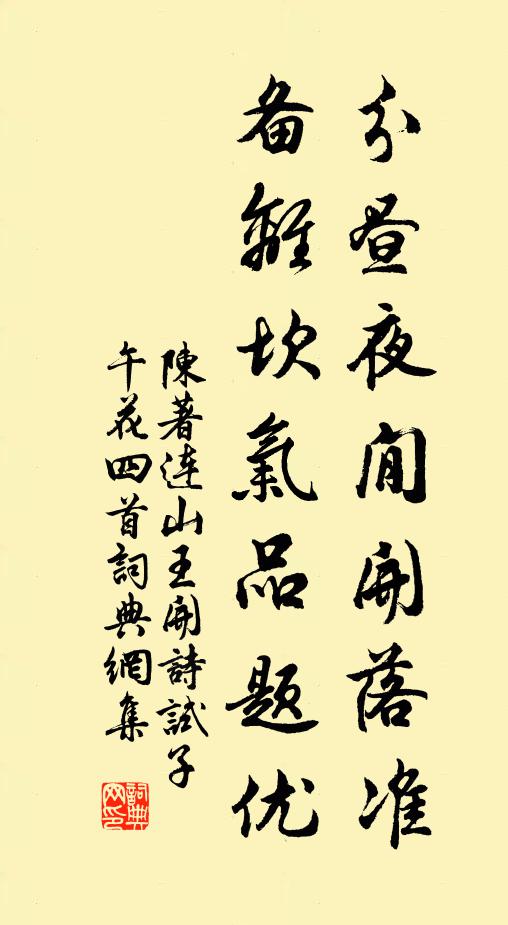 分昼夜间開落准
备離坎氣品题优
陳著連山王開詩試子
午花四首詞典網集
詞典
网印